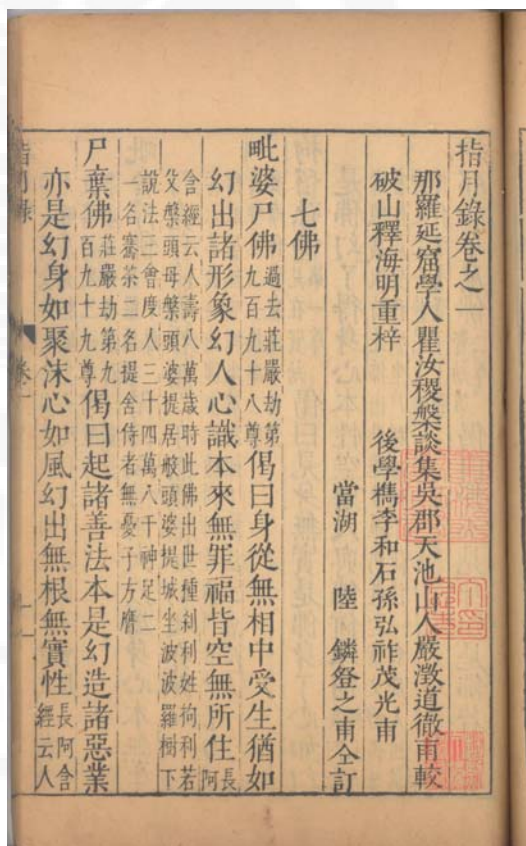 指月錄卷之一
那羅延窟學人瞿汝稷槃談集吳郡天池山人嚴澂道徹甫較
破山釋海明重梓
後學檇李和石孫弘祚茂光甫
當湖 陸 鏻燈之甫仝訂
七佛
毗婆尸佛過去莊嚴劫第九百九十八尊偈曰身從無相中受生猶如
幻出諸形象幻人心識本來無罪福皆空無所住長阿
含經云人壽八萬歲時此佛出世種刹利姓拘利若
父槃頭母槃頭婆提居般頭婆提城坐波波羅樹下
說法三會度人三十四萬八千神足二
一名騫茶二名提舍侍者無憂子方膺
尸棄佛莊嚴劫第九百九十九尊偈曰起諸善法本是幻造諸惡業
亦是幻身如聚沫心如風幻出無根無實性長阿含經云人
指月錄
卷一